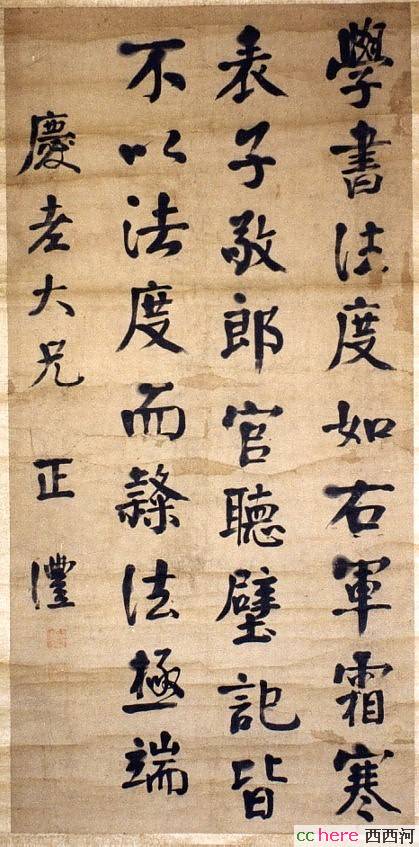 學書法度如右軍霜寒
表子敬郎官聽壁記皆
不以法度而隸法極端
慶老大兄 正 灃
cchere 西西河